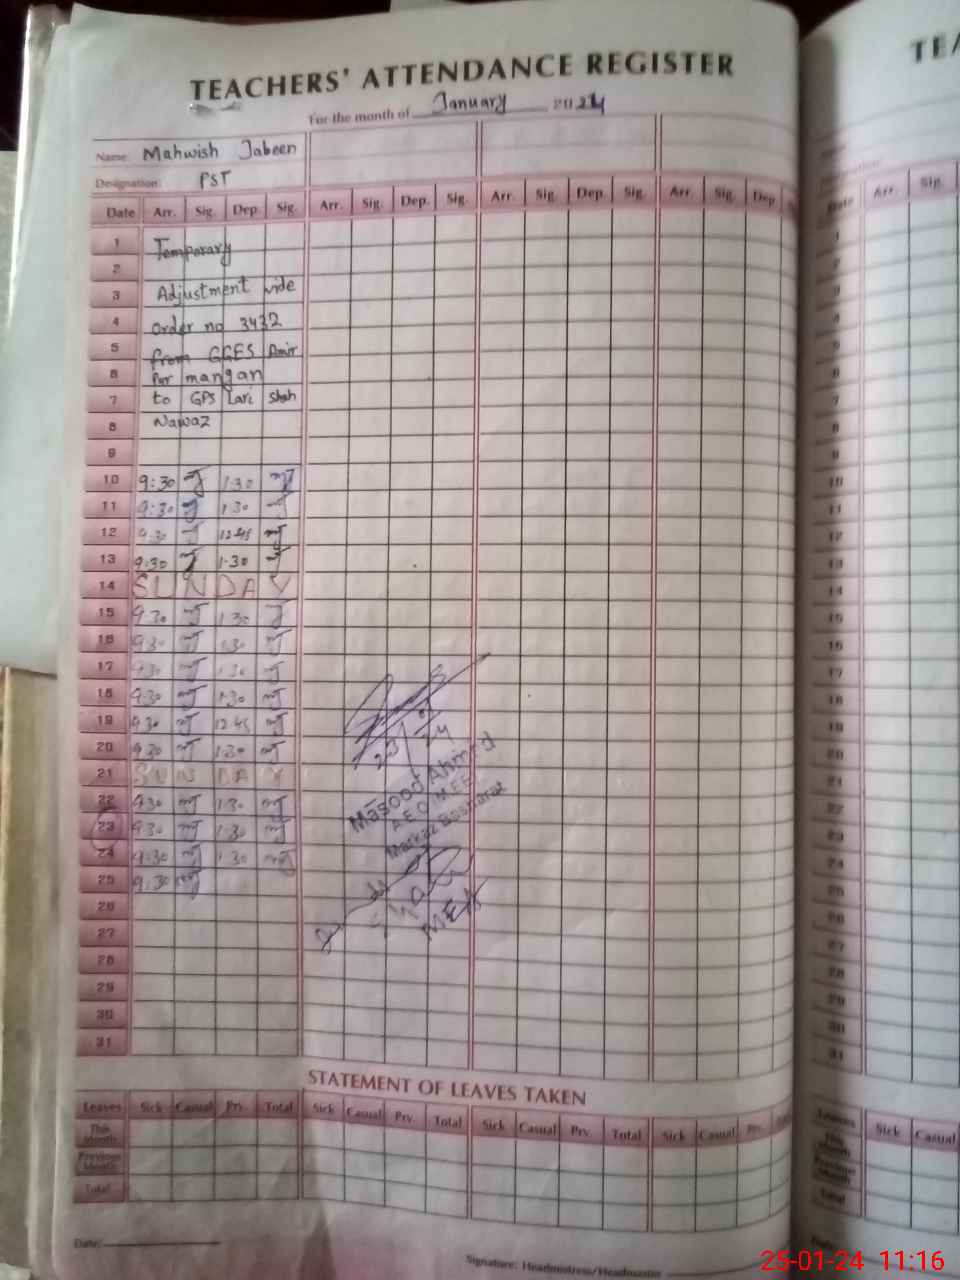 TEACHERS' ATTENDANCE REGISTER
For the month of January 2024
Name: Mahwish Jabeen
Designation: PST
Date Arr. Sig. Dep. Sig. Arr. Sig. Dep. Sig. Arr. Sig. Dep. Sig. Arr. Sig. Dep
1 Temporary
2
3 Adjustment wide
4 order no 3432
5 from GGES Amir
6 Pur mangan
7 to GPS Lari Shah
8 Nawaz
9
10 9:30 MJ 1:30 MJ
11 9:30 MJ 1:30 MJ
12 9:30 MJ 12:45 MJ
13 9:30 MJ 1:30 MJ
14 SUNDAY
15 9:30 MJ 1:30 MJ
16 9:30 MJ 1:30 MJ
17 9:30 MJ 1:30 MJ
18 9:30 MJ 1:30 MJ
19 9:30 MJ 12:45 MJ
20 9:30 MJ 1:30 MJ
21 SUNDAY
22 9:30 MJ 1:30 MJ
23 9:30 MJ 1:30 MJ
24 9:30 MJ 1:30 MJ
25 9:30 MJ
26
27
28
29
30
31
23/01/24
Masood Ahmed
A.E.O M.EE
Markaz Basharat
MEA
STATEMENT OF LEAVES TAKEN
Leaves Sick Casual Prv. Total Sick Casual Prv. Total Sick Casual Prv. Total Sick Casual Prv.
This Month
Previous Month
Total
Date:
Signature: Headmistress/Headmaster
TEA
Date Arr. Sig.
1
2
3
4
5
6
7
8
9
10
11
12
13
14
15
16
17
18
19
20
21
22
23
24
25
26
27
28
29
30
31
Leaves Sick Casual
This Month
Previous Month
Total
25-01-24 11:16